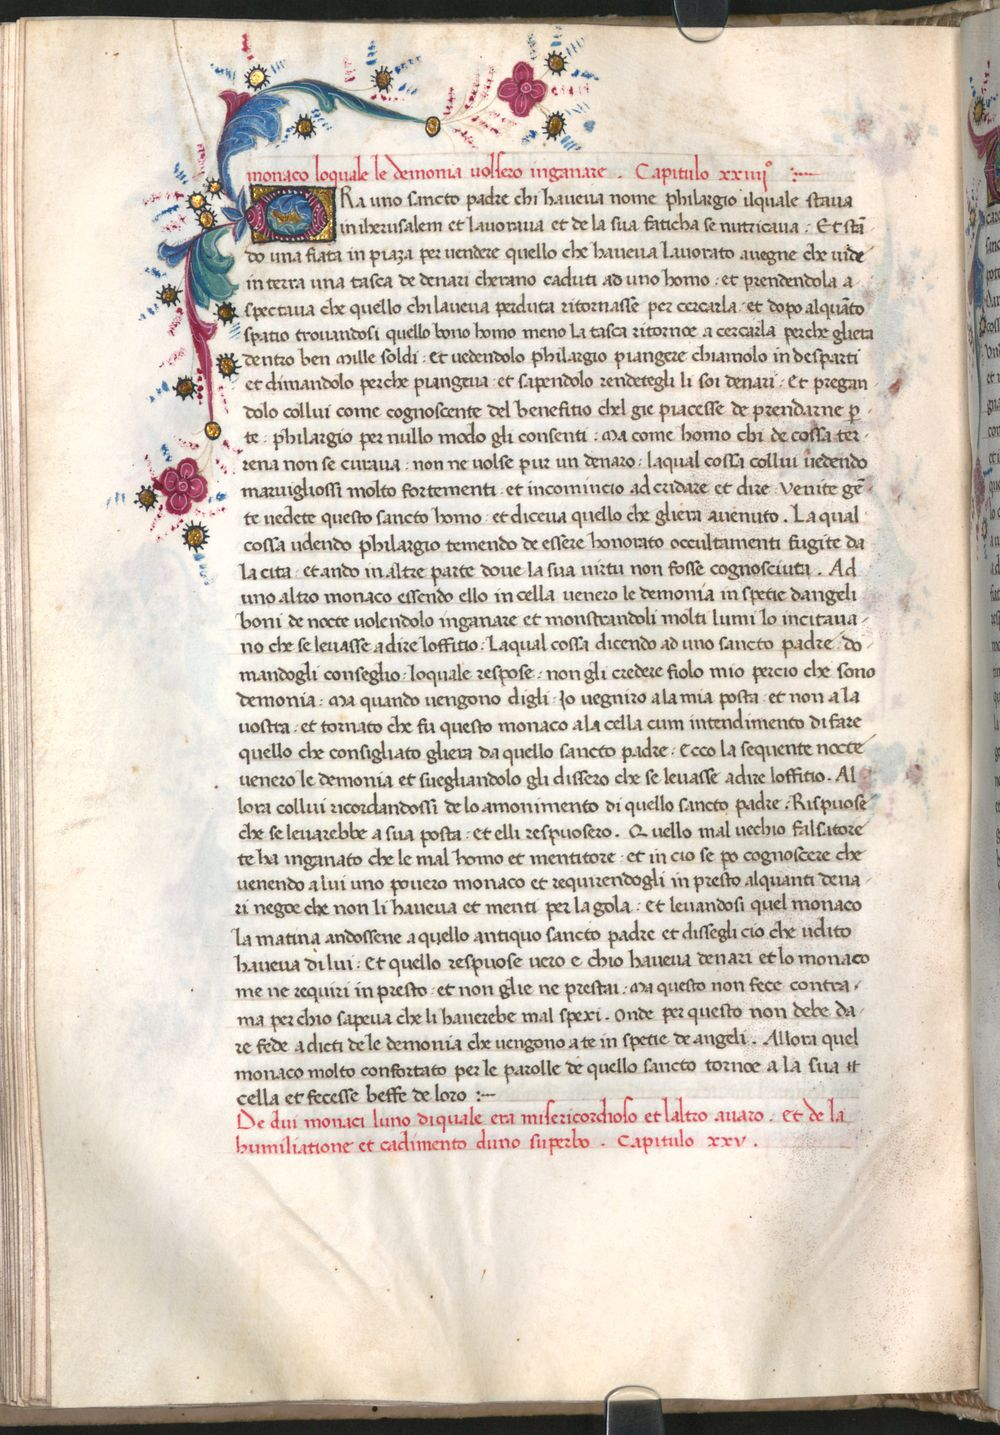 monaco loquale le demonia volsero inganare . Capitulo xxiiijº :~
ERa uno sancto padre chi haveva nome philargio ilquale stava
in iherusalem et lavorava et de la sua faticha se nutricava : Et stā
do una fiata in piaza per vendere quello che haveva lavorato avegne che vide
in terra una tasca de denari cherano caduti ad uno homo : et prendendola a
spectava che quello chi laveva perduta ritornasse per cercarla : et dopo alquāto
spatio trovandosi quello bono homo meno la tasca ritornoe a cercarla perche gliera
dentro ben mille soldi : et vedendolo philargio piangere chiamolo in desparti
et dimandolo perche piangeva : et sapendolo rendetegli li soi denari : Et pregan
dolo collui come cognoscente del benefitio chel gie piacesse de prendarne ꝑ
te : philargio per nullo modo gli consenti : Ma come homo chi de cossa ter
rena non se curava : non ne volse pur un denaro : laqual cossa collui vedendo
marvigliossi molto fortementi : et incomincio ad cridare et dire : Venite gē
te vedete questo sancto homo : et diceva quello che gliera avenuto . La qual
cossa udendo philargio temendo de essere honorato occultamenti fugite da
la cita : et ando in altre parte dove la sua virtu non fosse cognosciuta . Ad
uno altro monaco essendo ello in cella venero le demonia in spetie dangeli
boni de nocte volendolo inganare et monstrandoli molti lumi lo incitava
no che se levasse a dire loffitio : Laqual cossa dicendo ad uno sancto padre : do
mandogli conseglio : loquale respose : non gli credere fiolo mio percio che sono
demonia : Ma quando vengono digli : Io vegniro a la mia posta : et non a la
vostra : et tornato che fu questo monaco a la cella cum intendimento di fare
quello che consigliato gliera da quello sancto padre : Ecco la sequente nocte
venero le demonia et svegliandolo gli dissero che se levasse a dire loffitio . Al
lora collui ricordandossi de lo amonimento di quello sancto padre : Rispuose
che se levarebbe a sua posta : et elli respuosero . Quello mal vechio falsatore
te ha inganato che le mal homo et mentitore : et in cio se po cognoscere che
venendo a lui uno povero monaco et requirendogli in presto alquanti dena
ri negoe che non li haveva et menti per la gola : et levandosi quel monaco
la matina andossene a quello antiquo sancto padre et dissegli cio che udito
haveva di lui : Et quello respuose vero e chio haveva denari et lo monaco
me ne requiri in presto : et non glie ne prestai : Ma questo non fece contra
ma per chio sapeva che li haverebe mal spexi . Onde per questo non debe da
re fede a dicti de le demonia che vengono a te in spetie de angeli . Allora quel
monaco molto confortato per le parolle de quello sancto tornoe a la sua
cella et fecesse beffe de loro :~
De dui monaci luno di quale era misericordioso et laltro avaro . Et de la
humiliatione et cadimento duno superbo . Capitulo xxv .